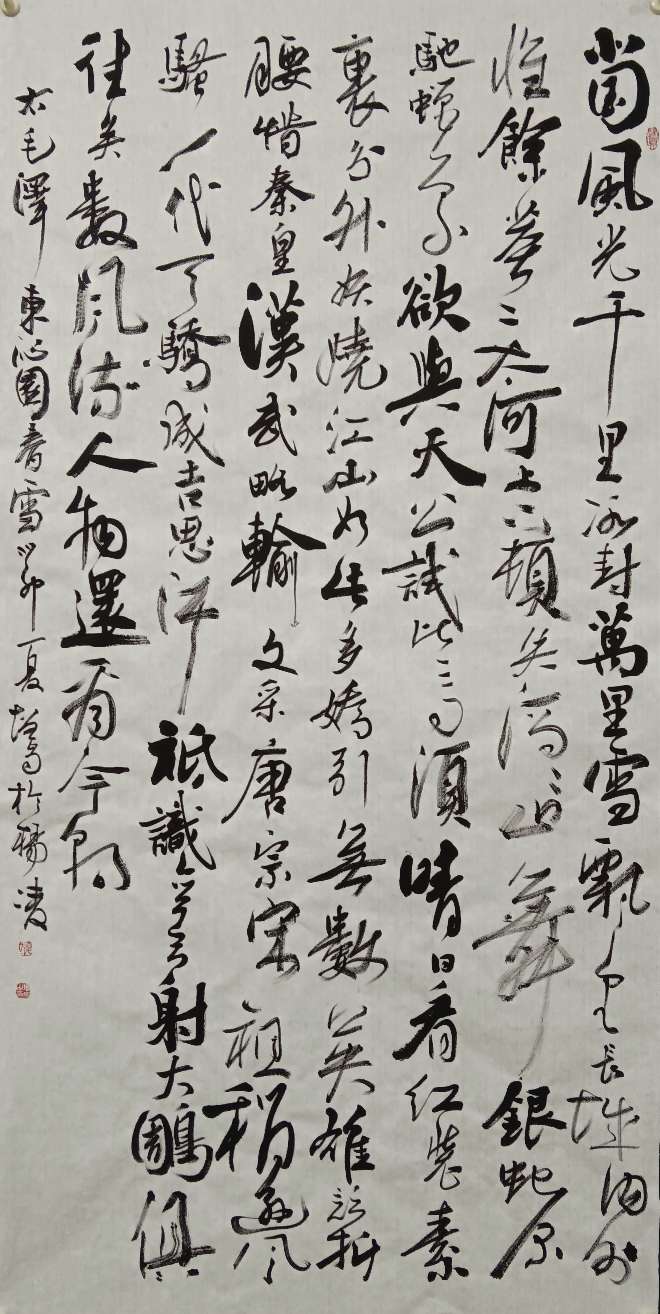 北國風光千里冰封萬里雪飄望長城內外
惟餘莽々大河上下頓失滔々山舞銀蛇原
馳蠟象欲與天公試比高須晴日看紅裝素
裹分外妖嬈江山如此多嬌引無數英雄競折
腰惜秦皇漢武略輸文采唐宗宋祖稍遜風
騷一代天驕成吉思汗祇識彎弓射大鵰俱
往矣數風流人物還看今朝
右毛澤東沁園春雪癸卯夏於楊凌